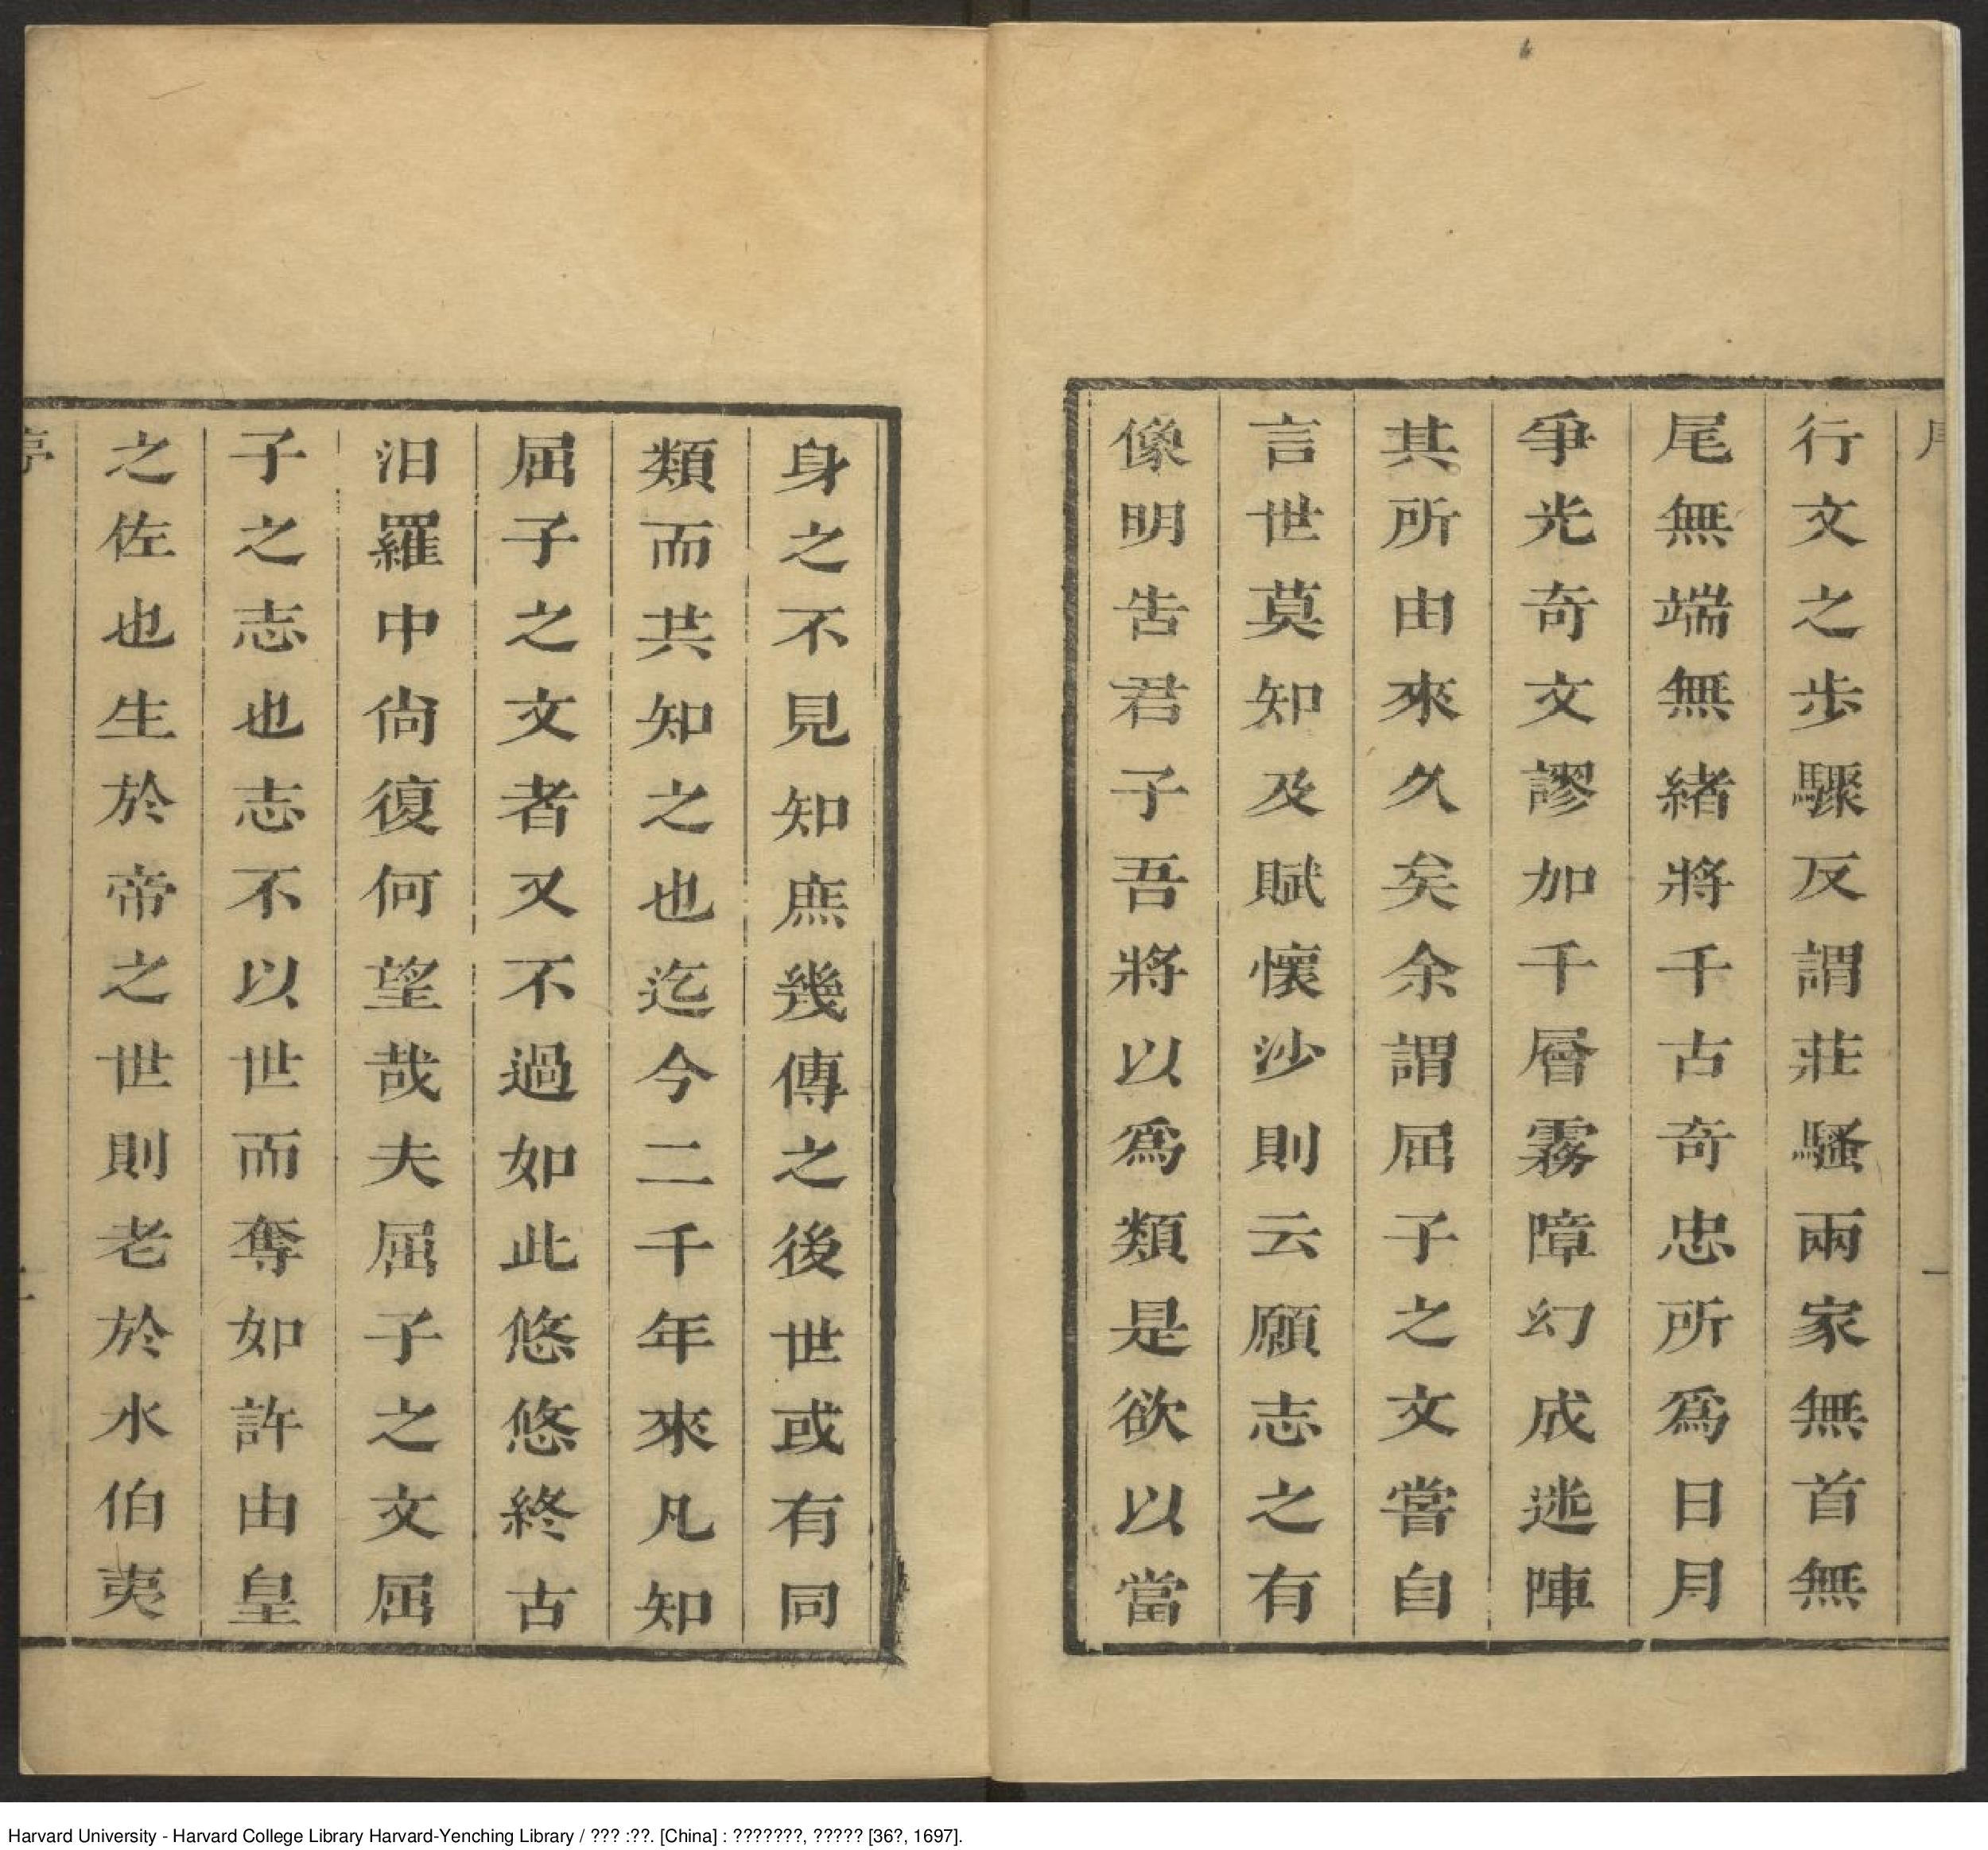 行文之步驟反謂莊騷兩家無首無
尾無端無緒將千古奇忠所爲日月
爭光奇文謬加千層霧障幻成迷陣
其所由來久矣余謂屈子之文嘗自
言世莫知及賦懷沙則云願志之有
像明告君子吾將以爲類是欲以當
身之不見知庶幾傳之後世或有同
類而共知之也迄今二千年來凡知
屈子之文者又不過如此悠悠終古
汨羅中尙復何望哉夫屈子之文屈
子之志也志不以世而奪如許由皇
之佐也生於帝之世則老於水伯夷
Harvard University - Harvard College Library Harvard-Yenching Library / ??? :??. [China] : ???????, ????? [36?, 1697].